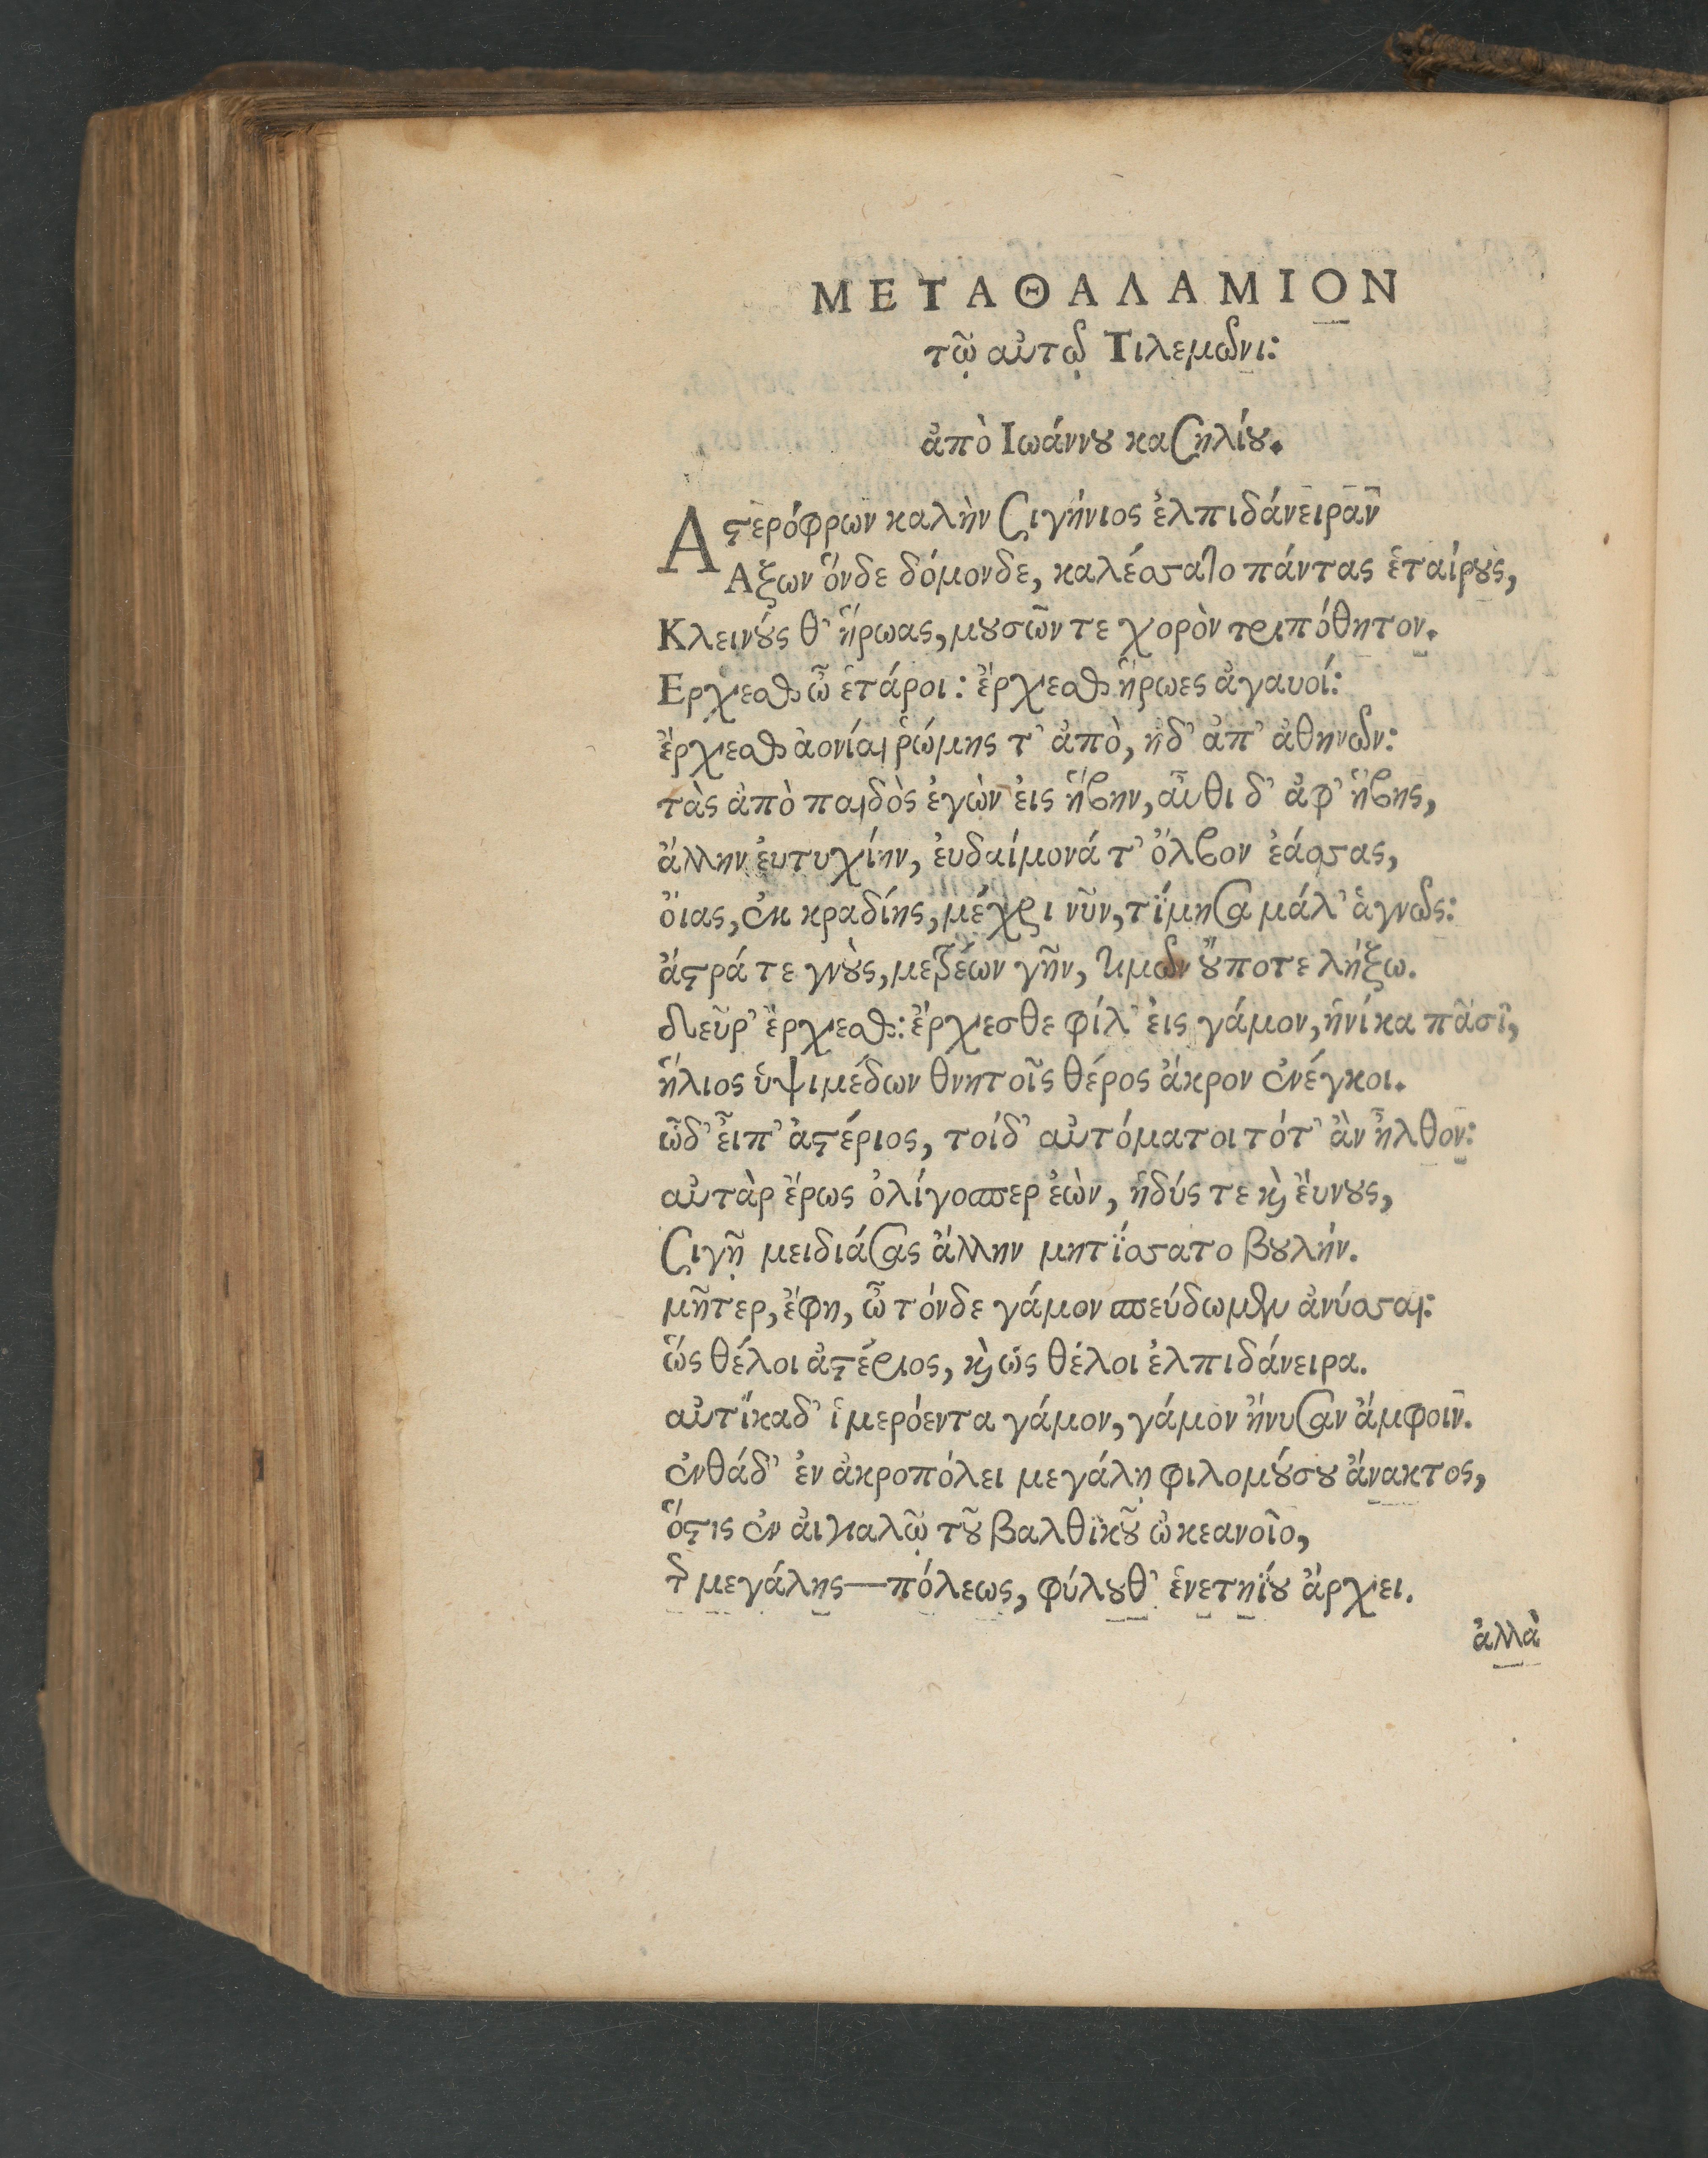 ΜΕΤΑΘΑΛΑΜΙΟΝ
τῷ αὐτῷ Τιλεμῶνι:
ἀπὸ Ιωάννου κασηλίου.
Αστερόφρων καλὴν σιγήνιος ἐλπιδάνειραν
Αξων ὅνδε δόμονδε, καλέσσατο πάντας ἑταίρους,
Κλεινούς θ' ἥρωας, μουσῶν τε χορὸν τριπόθητον.
Ερχεσθ ὦ ἑτάροι: ἔρχεσθ ἥρωες ἀγαυοί:
ἔρχεσθ ἀονίαι ῥώμης τ' ἀπὸ, ἠδ' ἀπ' ἀθηνῶν:
τὰς ἀπὸ παιδὸς ἐγὼν εἰς ἥβην, αὖθι δ' ἀφ' ἥβης,
ἄλλην ἐυτυχίην, ἐυδαίμονά τ' ὄλβον ἐάσσας,
ὅιας, ἐκ κραδίης, μέχρι νῦν, τίμησα μάλ' ἁγνῶς:
ἄστρά τε γνοὺς, μετρέων γῆν, ὑμῶν οὔποτε λήξω.
δεῦρ' ἔρχεσθ: ἔρχεσθε φίλ' ἐις γάμον, ἡνίκα πᾶσι,
ἥλιος ὑψιμέδων θνητοῖς θέρος ἄκρον ἐνέγκοι.
ὧδ' ἖ιπ' ἀστέριος, τοίδ' αὐτόματοι τότ' ἂν ἦλθον:
αὐτὰρ ἔρως ὀλίγοσπερ ἐὼν, ἡδύς τε καὶ ἔυνους,
σιγῇ μειδιάσας ἄλλην μητίσσατο βουλήν.
μῆτερ, ἔφη, ὦ τόνδε γάμον σπεύδωμεν ἀνύσσαι:
ὥς θέλοι ἀστέριος, καὶ ὥς θέλοι ἐλπιδάνειρα.
αὐτίκαδ' ἱμερόεντα γάμον, γάμον ἤνυσαν ἄμφοιν.
ἐνθάδ' ἐν ἀκροπόλει μεγάλῃ φιλομούσου ἄνακτος,
ὅστις ἐν ἀιγιαλῷ τοῦ βαλθικοῦ ὠκεανοῖο,
τῆς μεγάλης—πόλεως, φύλουθ' ἑνετηίου ἄρχει.
ἀλλὰ